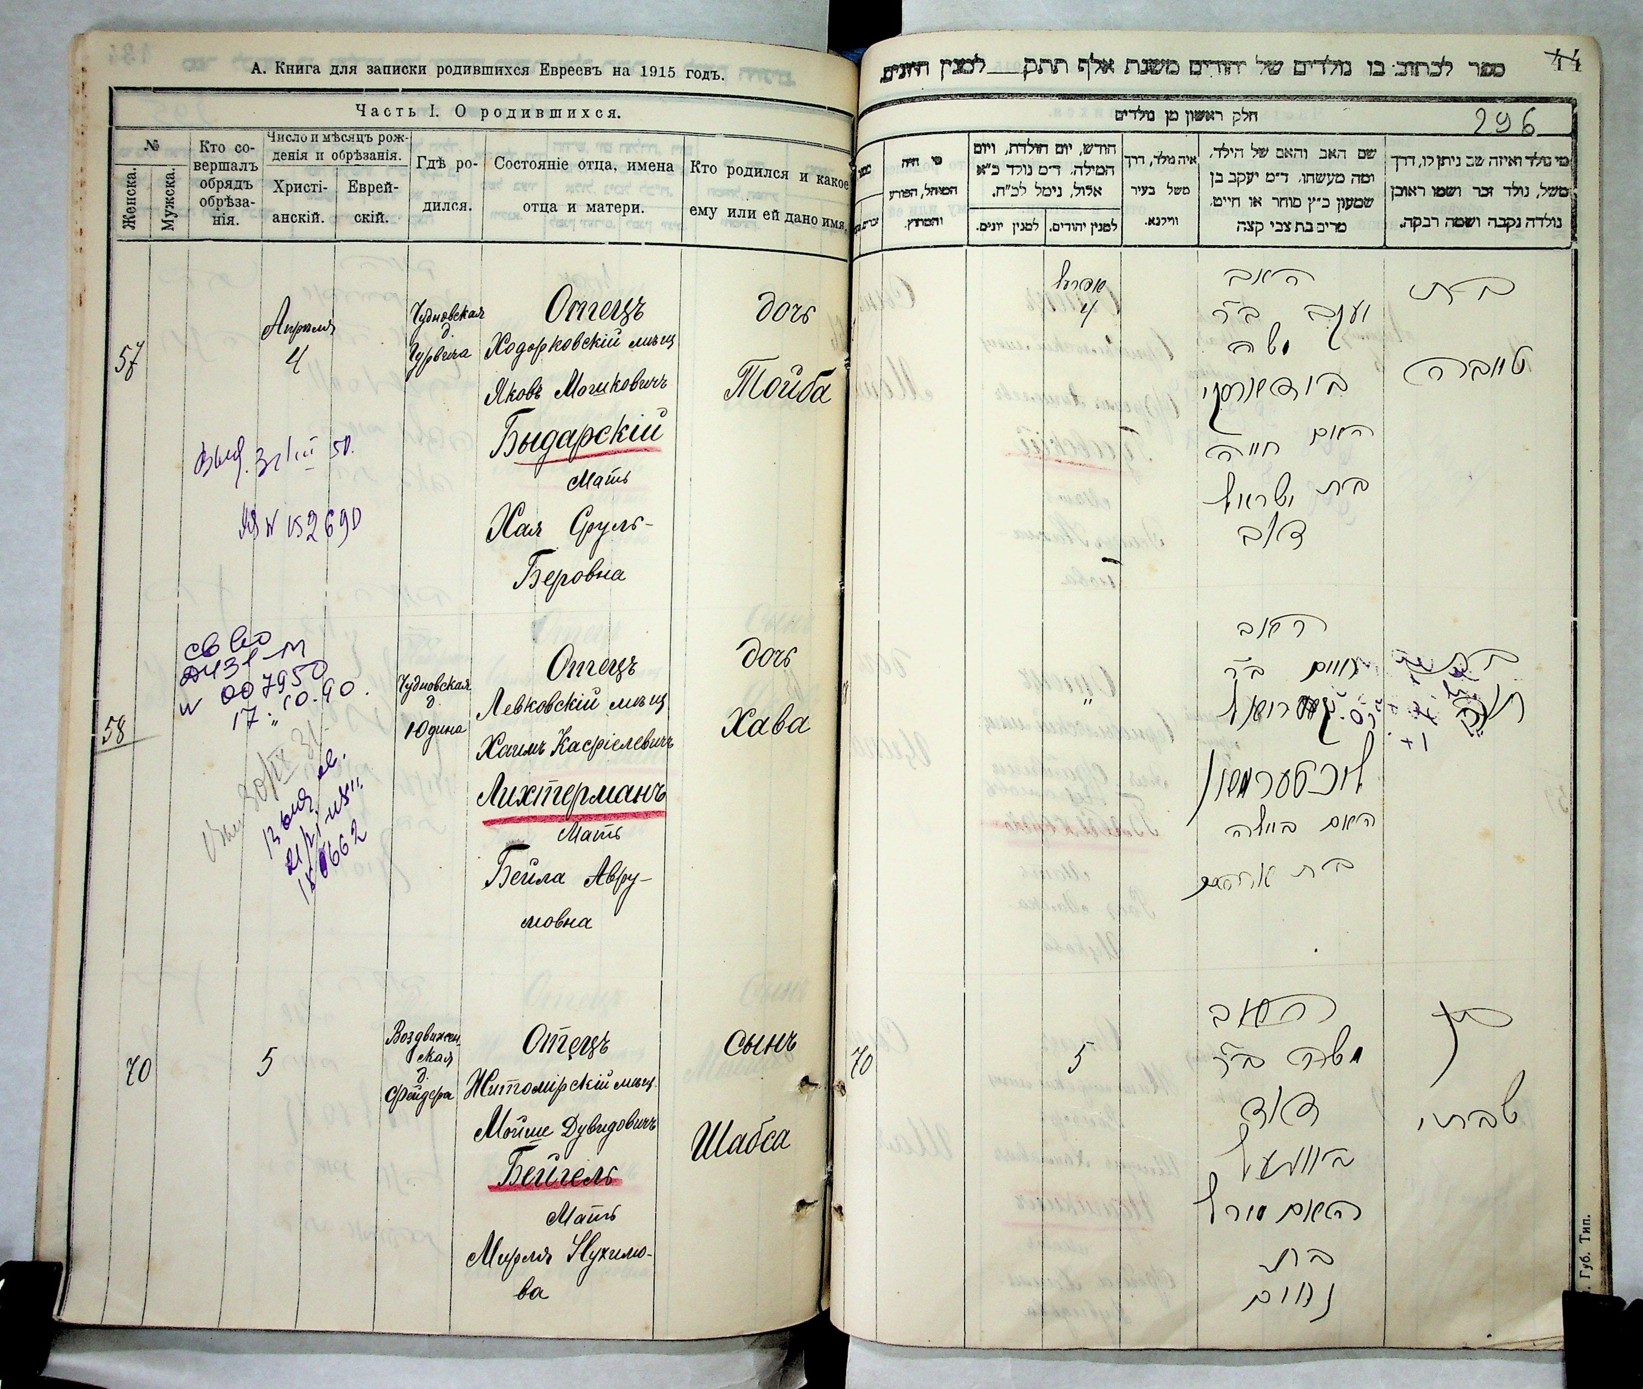 А. Книга для записки родившихся Евреевъ на 1915 годъ.
Часть I. О родившихся.
№
Женска.
Мужска.
Кто со-
вершалъ
обрядъ
обрѣза-
нія.
Число и мѣсяцъ рож-
денія и обрѣзанія.
Христі-
анскій.
Еврей-
скій.
Гдѣ ро-
дился.
Состояніе отца, имена
отца и матери.
Кто родился и какое
ему или ей дано имя.
57
Апрѣля
4
Чудновская
д.
Гурвича
Отецъ
Ходорковскій мѣщ
Яковъ Мошковичъ
Быдарскій
Мать
Хая Сруль-
Беровна
дочь
Тойба
58
Чудновская
д
Юдина
Отецъ
Левковскій мѣщ
Хаимъ Касріелевичъ
Лихтерманъ
Мать
Бейла Авру-
мовна
дочь
Хава
N 007950
17.10.90.
70
5
Воздвижен
ская
д.
Фейдера
Отецъ
Житомірскій мѣщ.
Мойше Дувидовичъ
Бейгель
Мать
Мирля Нухимо-
ва
сынъ
Шабса
44
ספר לכתוב בו נולדים של יהודים משנת אלף תתק לפנין היונים
חלק ראשון מן נולדים
296
מי נולד ואיזה שם ניתן לו, דרך
משל, נולד זכר ושמו ראובן
נולדה נקבה ושמה רבקה.
שם האב והאם של הילד,
ומה מעשהו. ד״מ יעקב בן
שמעון כ״ץ סוחר או חייט,
מרים בת צבי קצה
איה נולד, דרך
משל בעיר
ווילנא.
חודש, יום הולדת, ויום
המילה. ד״מ נולד כ״א
אלול, נימל לכ״ח.
למנין יהודים.
למנין יונים.
מי היה
המוהל, הפורע
והמוצץ.
אפריל
4
האב
יעקב ב״ר
משה
האם חיה
בת ישראל
דוב
בת
טויבה
האב
חיים ב״ר
ליכטערמאן
האם ביילה
בת אברהם
70
5
האב
משה ב״ר
דוד
בייגעל
האם מירל
בת
נחום
בן
שבתי
Губ. Тип.